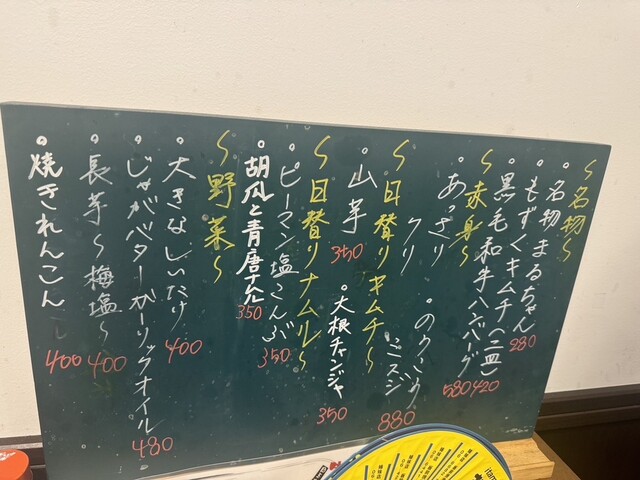 〜名物〜
・名物 まるちゃん 280
・もずくキムチ(二皿) 420
・黒毛和牛ハンバーグ 580
〜赤身〜
・あっさり クリ
・のうこう ミスジ 880
〜日替りキムチ〜
・山芋 350
・大根チャンジャ 350
〜日替りナムル〜
・ピーマン塩こんぶ 350
・胡瓜と青唐ナムル 350
〜野菜〜
・大きなしいたけ 400
・じゃがバターガーリックオイル 480
・長芋〜梅塩〜 400
・焼きれんこん 400